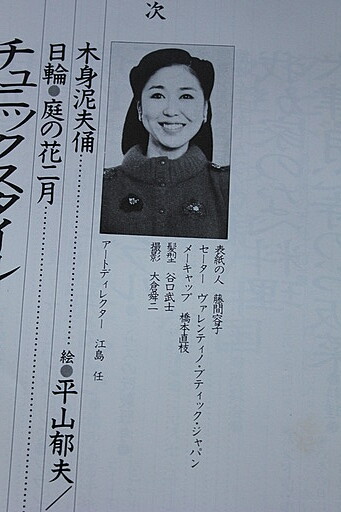 次
表紙の人 藤間容子
セーター ヴァレンティノ・ブティック・ジャパン
メーキャップ 橋本直枝
髪型 谷口武士
撮影 大倉舜二
アートディレクター 江島 任
木身泥夫俑
日輪●庭の花二月 絵●平山郁夫/
チュニックスタイル